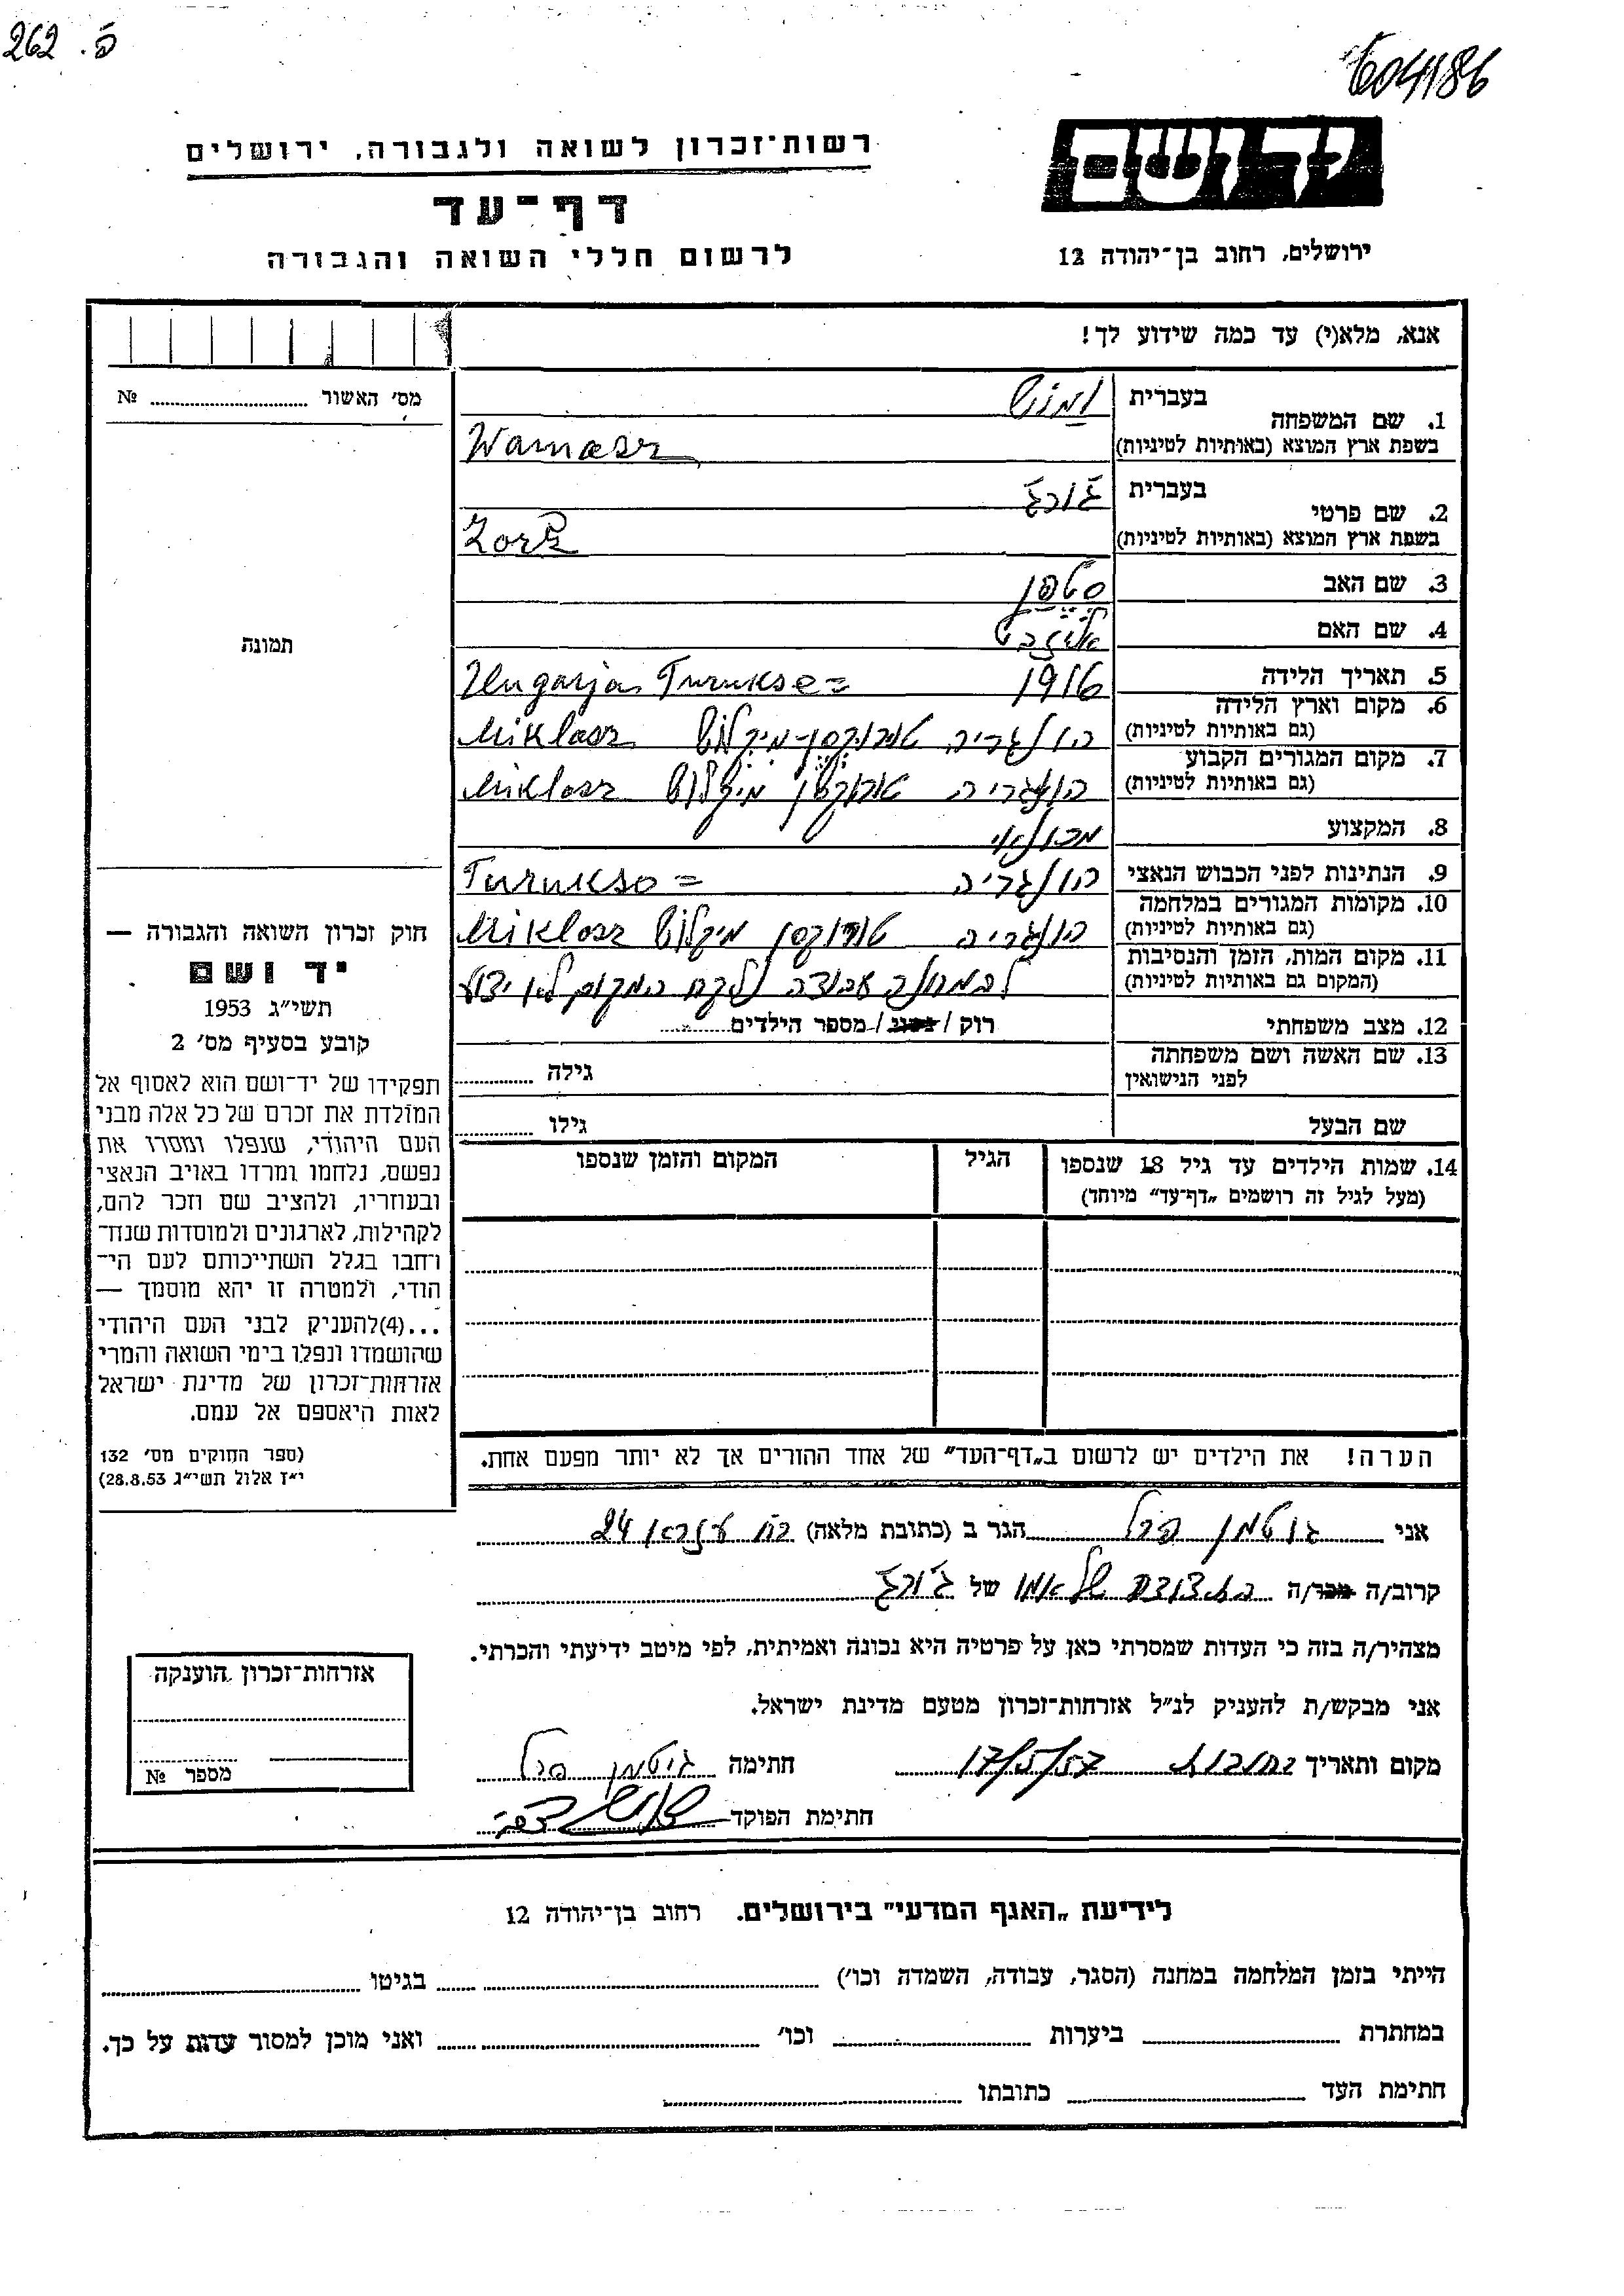 262 . פ
604186
יד ושם
ירושלים, רחוב בן־יהודה 12
רשות־זכרון לשואה ולגבורה, ירושלים
דף־עד
לרשום חללי השואה והגבורה
אנא, מלא(י) עד כמה שידוע לך!
מס׳ האשור № ........
תמונה
1. שם המשפחה
בעברית
בשפת ארץ המוצא (באותיות לטיניות) Warnasz
2. שם פרטי
בעברית ז׳ורז׳
בשפת ארץ המוצא (באותיות לטיניות)
3. שם האב סטפן
4. שם האם אליזבט
5. תאריך הלידה 1916 Hungarja Turukse=
6. מקום וארץ הלידה
(גם באותיות לטיניות) הונגריה טורוקסן-מיקלוש Miklosz
7. מקום המגורים הקבוע
(גם באותיות לטיניות) הונגריה טורוקסן מיקלוש Miklosz
8. המקצוע מכונאי
9. הנתינות לפני הכבוש הנאצי הונגריה Turukso=
10. מקומות המגורים במלחמה
(גם באותיות לטיניות) הונגריה טורוקסן מיקלוש Miklosz
11. מקום המות, הזמן והנסיבות
(המקום גם באותיות לטיניות) למחנה עבודה נלקח המקום לא ידוע
12. מצב משפחתי רוק / נשוי / מספר הילדים ........
13. שם האשה ושם משפחתה
לפני הנישואין גילה ........
שם הבעל גילו ........
14. שמות הילדים עד גיל 18 שנספו
(מעל לגיל זה רושמים „דף־עד” מיוחד)
הגיל
המקום והזמן שנספו
הערה! את הילדים יש לרשום ב„דף־העד” של אחד ההורים אך לא יותר מפעם אחת.
חוק זכרון השואה והגבורה —
יד ושם
תשי״ג 1953
קובע בסעיף מס׳ 2
תפקידו של יד־ושם הוא לאסוף אל
המולדת את זכרם של כל אלה מבני
העם היהודי, שנפלו ומסרו את
נפשם, נלחמו ומרדו באויב הנאצי
ובעוזריו, ולהציב שם וזכר להם,
לקהילות, לארגונים ולמוסדות שנח־
רבו בגלל השתייכותם לעם הי־
הודי, ולמטרה זו יהא מוסמך —
...(4) להעניק לבני העם היהודי
שהושמדו ונפלו בימי השואה והמרי
אזרחות־זכרון של מדינת ישראל
לאות היאספם אל עמם.
(ספר החוקים מס׳ 132
י״ז אלול תשי״ג 28.8.53)
אני גוטמן פרל הגר ב (כתובת מלאה) 24
קרוב/ה מכר/ה בת דודה של אמו של ז׳ורז׳
מצהיר/ה בזה כי העדות שמסרתי כאן על פרטיה היא נכונה ואמיתית, לפי מיטב ידיעתי והכרתי.
אני מבקש/ת להעניק לנ״ל אזרחות־זכרון מטעם מדינת ישראל.
מקום ותאריך רחובות 17/5/57 חתימה גוטמן פרל
חתימת הפוקד
אזרחות־זכרון הוענקה
מספר №
לידיעת „האגף המדעי” בירושלים. רחוב בן־יהודה 12
הייתי בזמן המלחמה במחנה (הסגר, עבודה, השמדה וכו׳) ........ בגיטו ........
במחתרת ........ ביערות ........ וכו׳ ........ ואני מוכן למסור עדות על כך.
חתימת העד ........ כתובתו ........